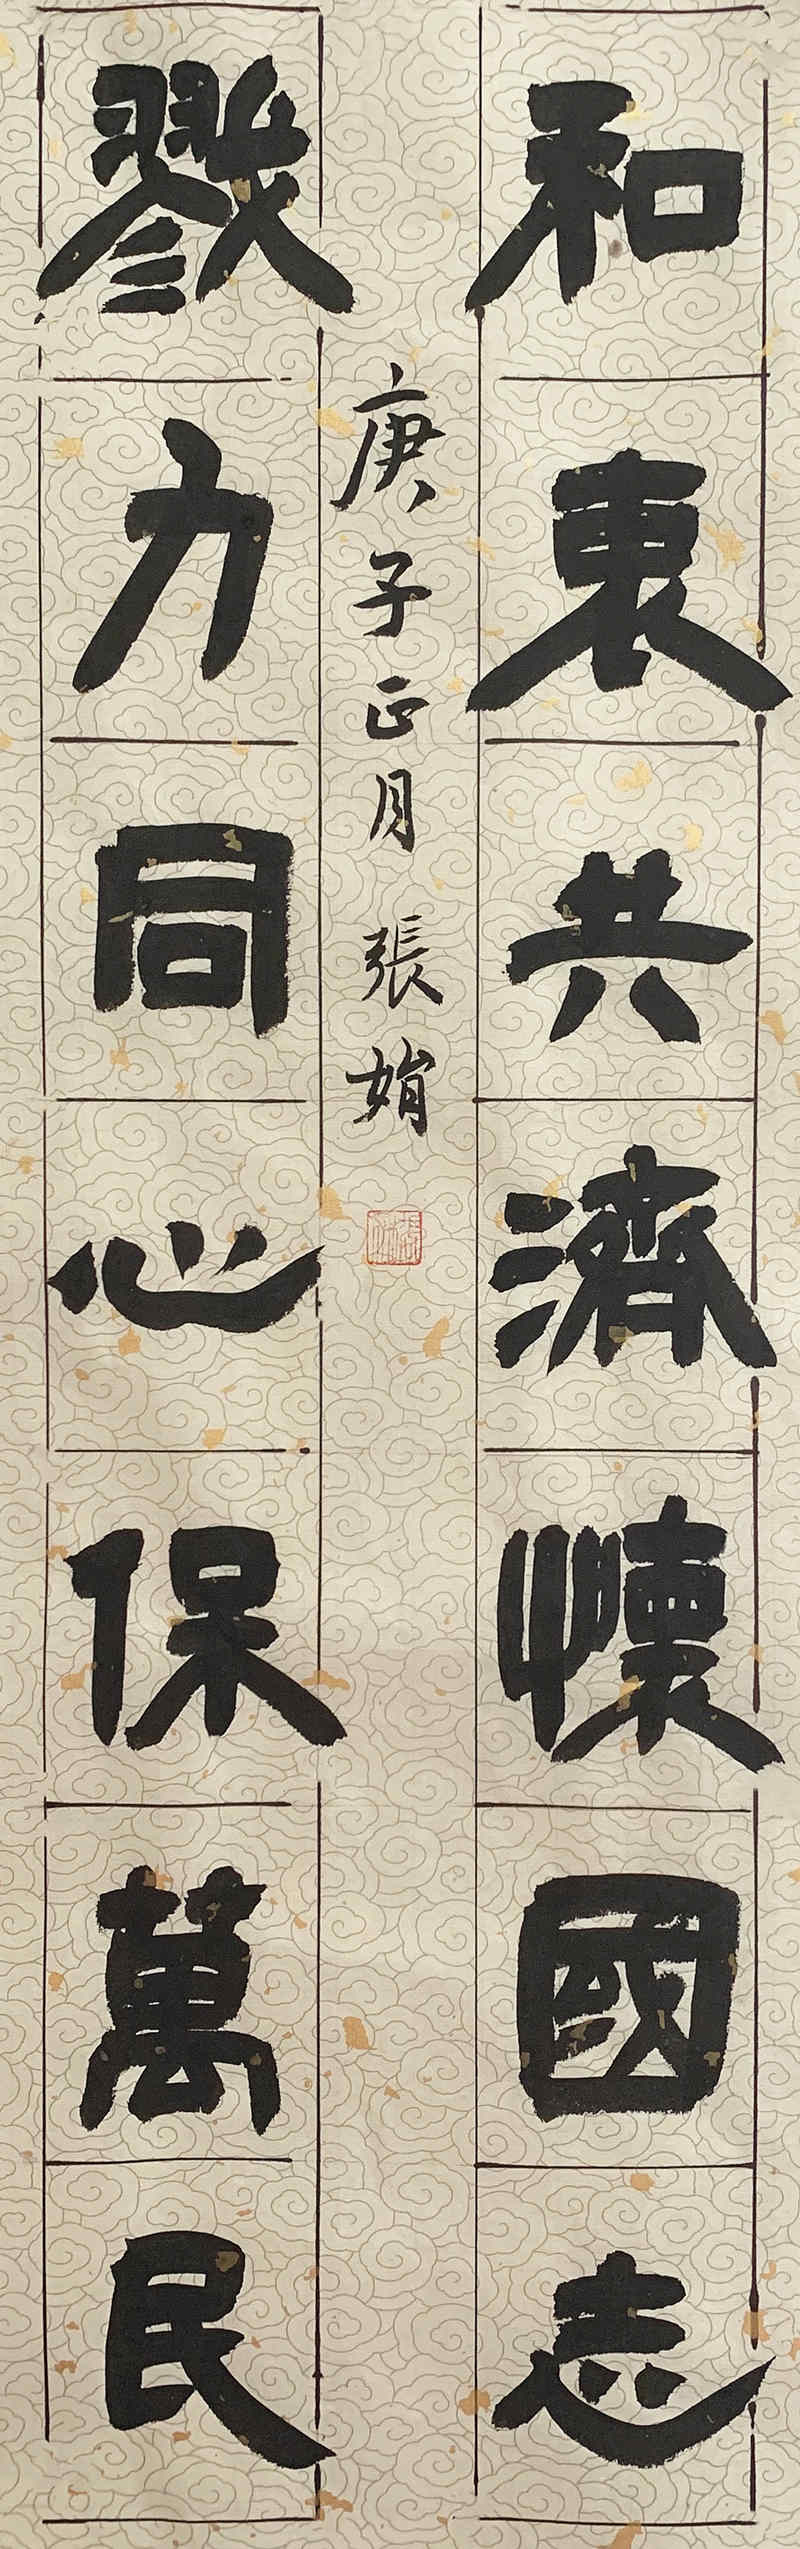 和衷共濟懷國志
戮力同心保萬民
庚子正月 張娟